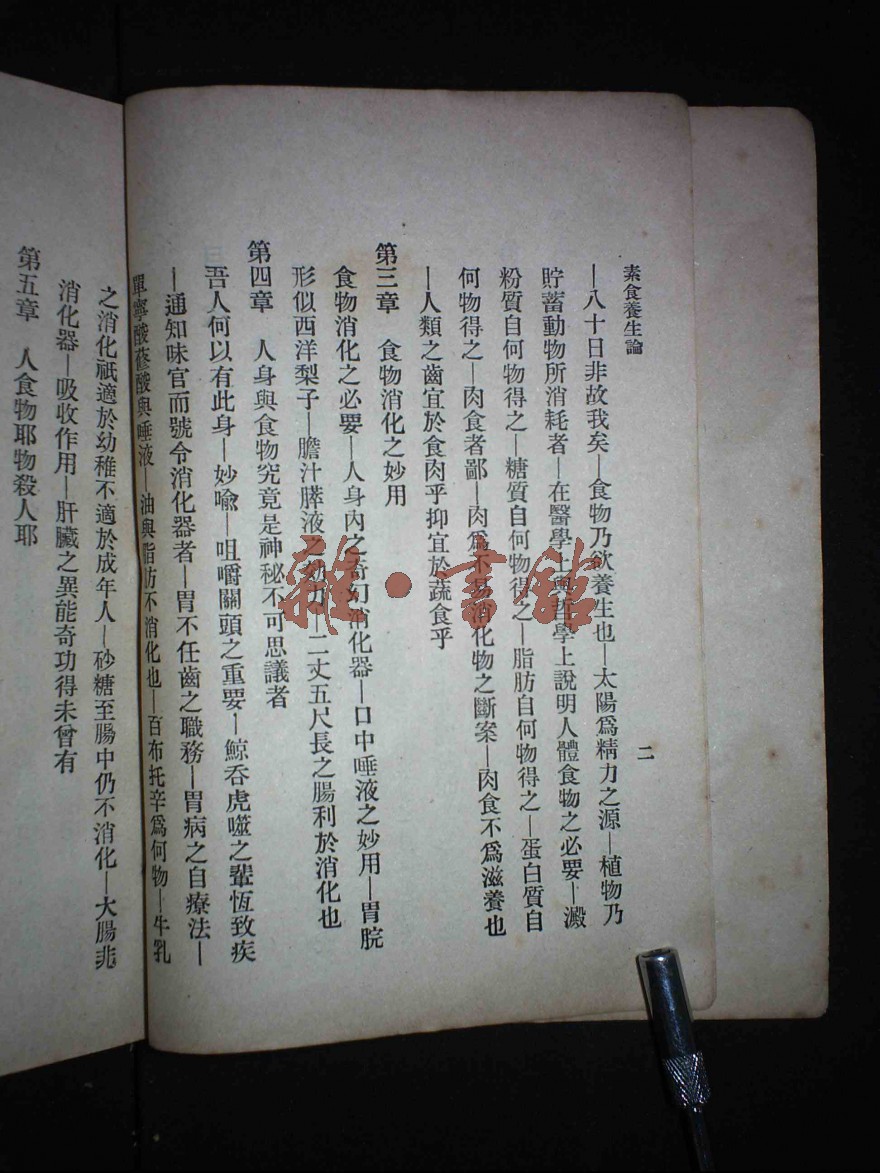 素食養生論
二
—八十日非故我矣—食物乃欲養生也—太陽爲精力之源—植物乃
貯蓄動物所消耗者—在醫學上與哲學上說明人體食物之必要—澱
粉質自何物得之—糖質自何物得之—脂肪自何物得之—蛋白質自
何物得之—肉食者鄙—肉爲不易消化物之斷案—肉食不爲滋養也
—人類之齒宜於食肉乎抑宜於蔬食乎
第三章 食物消化之妙用
食物消化之必要—人身內之奇幻消化器—口中唾液之妙用—胃脘
形似西洋梨子—膽汁膵液之効力—二丈五尺長之腸利於消化也
第四章 人身與食物究竟是神秘不可思議者
吾人何以有此身—妙喩—咀嚼關頭之重要—鯨吞虎噬之輩恆致疾
—通知味官而號令消化器者—胃不任齒之職務—胃病之自療法—
單寧酸蓚酸與唾液—油與脂肪不消化也—百布托辛爲何物—牛乳
之消化祇適於幼稚不適於成年人—砂糖至腸中仍不消化—大腸非
消化器—吸收作用—肝臟之異能奇功得未曾有
第五章 人食物耶物殺人耶
雜·書館